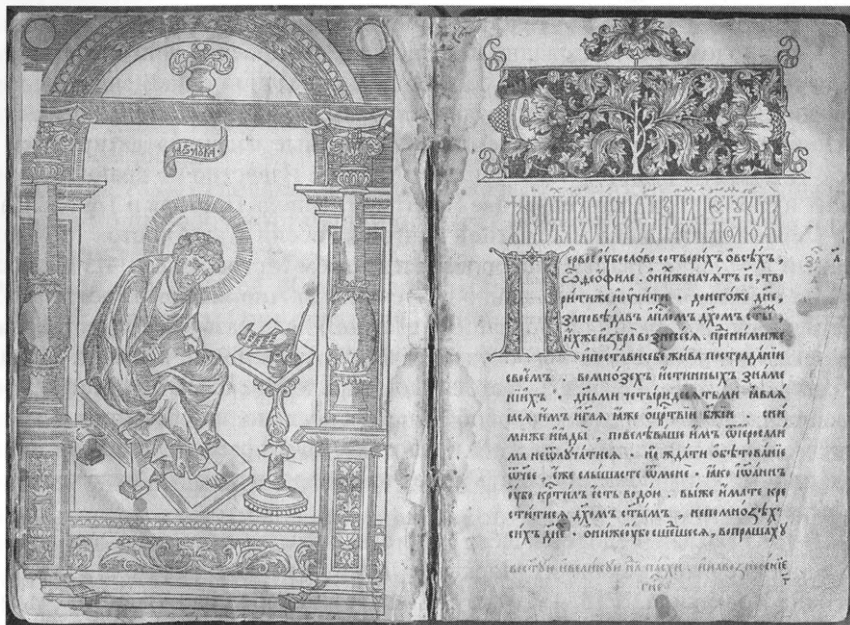 Первоѐ ѹ҆бо слово сотворихъ ѽ всѣхъ ,
ѽ део́филе . ѡ҆ ни́хже начатъ і҆с҃ , тво
рити же и҆ ѹ҆чити · до негоже дн҃е ,
заповѣдавъ а҆пⷭ҇ломъ дх҃омъ ст҃ы̑м ,
и҆хже и҆збра вознесеся . пред ними же
и҆ постави себе жива по страданїи
своѐмъ · во мнозехъ и҆стинныхъ знаме
нїи҆хъ · дн҃ьми четыридесятьми ꙗ҆вляꙗ
ꙗсѧ и҆мъ и҆ гл҃ѧ ꙗ҆же ѡ҆ црⷭ҇твїи бж҃їи . с ни
миже и҆ ꙗ҆ды̀ , повелѣваше и҆мъ ѿ і҆еросали
ма не ѿлучатися · но ждати ѡ҆бѣтованїе
ѿч҃ее , е҆же слышасте ѿ мене · ꙗ҆ко і҆ѡ҆аннъ
ѹ҆бо крⷭ҇тилъ е҆сть водою · вы же и҆мате кре
ститися дх҃омъ ст҃ымъ , не по мнозѣхъ
сихъ дн҃е · ѡ҆ни же ѹ҆бо сшедшеся , вопрашаху